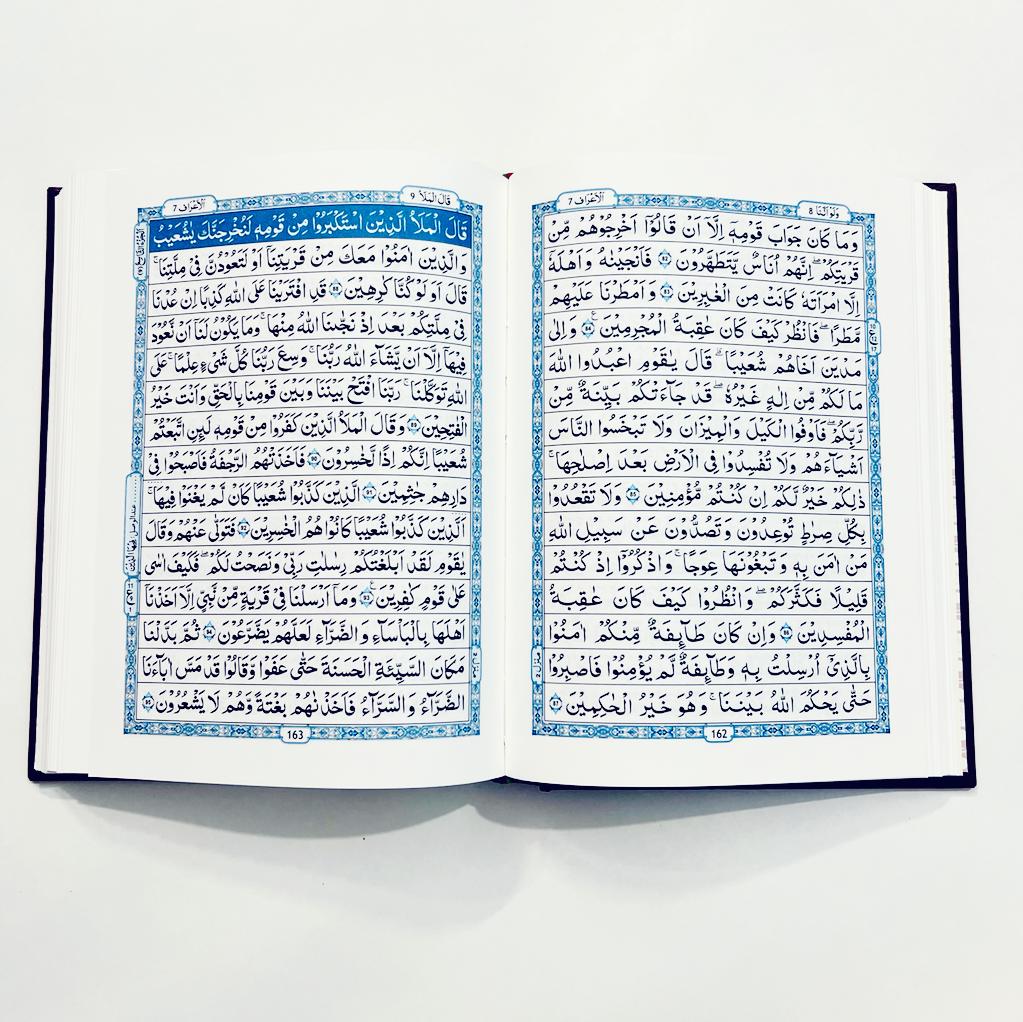 وَلَوْ اَنَّنَا 8
اَلْاَعْرَاف 7
وَمَا كَانَ جَوَابَ قَوْمِهٖۤ اِلَّاۤ اَنْ قَالُوْۤا اَخْرِجُوْهُمْ مِّنْ
قَرْيَتِكُمْ ۚ اِنَّهُمْ اُنَاسٌ يَّتَطَهَّرُوْنَ 82 فَاَنْجَيْنٰهُ وَاَهْلَهٗۤ
اِلَّا امْرَاَتَهٗ كَانَتْ مِنَ الْغٰبِرِيْنَ 83 وَاَمْطَرْنَا عَلَيْهِمْ
مَّطَرًا ۖ فَانْظُرْ كَيْفَ كَانَ عَاقِبَةُ الْمُجْرِمِيْنَ 84 وَاِلٰى
مَدْيَنَ اَخَاهُمْ شُعَيْبًا ۖ قَالَ يٰقَوْمِ اعْبُدُوا اللّٰهَ
مَا لَكُمْ مِّنْ اِلٰهٍ غَيْرُهٗ ۖ قَدْ جَآءَتْكُمْ بَيِّنَةٌ مِّنْ
رَّبِّكُمْ ۖ فَاَوْفُوا الْكَيْلَ وَالْمِيْزَانَ وَلَا تَبْخَسُوا النَّاسَ
اَشْيَآءَهُمْ وَلَا تُفْسِدُوْا فِى الْاَرْضِ بَعْدَ اِصْلَاحِهَا ۚ
ذٰلِكُمْ خَيْرٌ لَّكُمْ اِنْ كُنْتُمْ مُّؤْمِنِيْنَ 85 وَلَا تَقْعُدُوْا
بِكُلِّ صِرَاطٍ تُوْعِدُوْنَ وَتَصُدُّوْنَ عَنْ سَبِيْلِ اللّٰهِ
مَنْ اٰمَنَ بِهٖ وَتَبْغُوْنَهَا عِوَجًا ۚ وَاذْكُرُوْۤا اِذْ كُنْتُمْ
قَلِيْلًا فَكَثَّرَكُمْ ۖ وَانْظُرُوْا كَيْفَ كَانَ عَاقِبَةُ
الْمُفْسِدِيْنَ 86 وَاِنْ كَانَ طَآئِفَةٌ مِّنْكُمْ اٰمَنُوْا
بِالَّذِيْۤ اُرْسِلْتُ بِهٖ وَطَآئِفَةٌ لَّمْ يُؤْمِنُوْا فَاصْبِرُوْا
حَتّٰى يَحْكُمَ اللّٰهُ بَيْنَنَا ۚ وَهُوَ خَيْرُ الْحٰكِمِيْنَ 87
162
قَالَ الْمَلَاُ 9
اَلْاَعْرَاف 7
قَالَ الْمَلَاُ الَّذِيْنَ اسْتَكْبَرُوْا مِنْ قَوْمِهٖ لَنُخْرِجَنَّكَ يٰشُعَيْبُ
وَالَّذِيْنَ اٰمَنُوْا مَعَكَ مِنْ قَرْيَتِنَاۤ اَوْ لَتَعُوْدُنَّ فِيْ مِلَّتِنَا ۚ
قَالَ اَوَلَوْ كُنَّا كٰرِهِيْنَ 88 قَدِ افْتَرَيْنَا عَلَى اللّٰهِ كَذِبًا اِنْ عُدْنَا
فِيْ مِلَّتِكُمْ بَعْدَ اِذْ نَجّٰىنَا اللّٰهُ مِنْهَا ۚ وَمَا يَكُوْنُ لَنَاۤ اَنْ نَّعُوْدَ
فِيْهَاۤ اِلَّاۤ اَنْ يَّشَآءَ اللّٰهُ رَبُّنَا ۚ وَسِعَ رَبُّنَا كُلَّ شَيْءٍ عِلْمًا ۚ عَلَى
اللّٰهِ تَوَكَّلْنَا ۚ رَبَّنَا افْتَحْ بَيْنَنَا وَبَيْنَ قَوْمِنَا بِالْحَقِّ وَاَنْتَ خَيْرُ
الْفٰتِحِيْنَ 89 وَقَالَ الْمَلَاُ الَّذِيْنَ كَفَرُوْا مِنْ قَوْمِهٖ لَئِنِ اتَّبَعْتُمْ
شُعَيْبًا اِنَّكُمْ اِذًا لَّخٰسِرُوْنَ 90 فَاَخَذَتْهُمُ الرَّجْفَةُ فَاَصْبَحُوْا فِيْ
دَارِهِمْ جٰثِمِيْنَ 91 الَّذِيْنَ كَذَّبُوْا شُعَيْبًا كَاَنْ لَّمْ يَغْنَوْا فِيْهَا ۚ
اَلَّذِيْنَ كَذَّبُوْا شُعَيْبًا كَانُوْا هُمُ الْخٰسِرِيْنَ 92 فَتَوَلّٰى عَنْهُمْ وَقَالَ
يٰقَوْمِ لَقَدْ اَبْلَغْتُكُمْ رِسٰلٰتِ رَبِّيْ وَنَصَحْتُ لَكُمْ ۚ فَكَيْفَ اٰسٰى
عَلٰى قَوْمٍ كٰفِرِيْنَ 93 وَمَاۤ اَرْسَلْنَا فِيْ قَرْيَةٍ مِّنْ نَّبِيٍّ اِلَّاۤ اَخَذْنَاۤ
اَهْلَهَا بِالْبَاْسَآءِ وَالضَّرَّآءِ لَعَلَّهُمْ يَضَّرَّعُوْنَ 94 ثُمَّ بَدَّلْنَا
مَكَانَ السَّيِّئَةِ الْحَسَنَةَ حَتّٰى عَفَوْا وَّقَالُوْا قَدْ مَسَّ اٰبَآءَنَا
الضَّرَّآءُ وَالسَّرَّآءُ فَاَخَذْنٰهُمْ بَغْتَةً وَّهُمْ لَا يَشْعُرُوْنَ 95
163